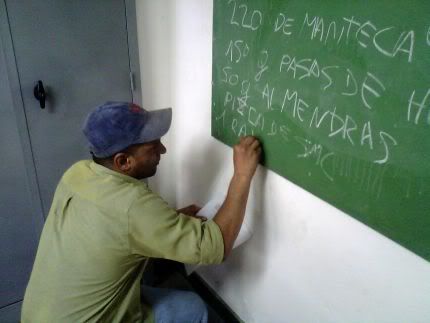 220 DE MANTECA
150 g PASAS DE
50 g ALMENDRAS
PIZCA DE SAL
1